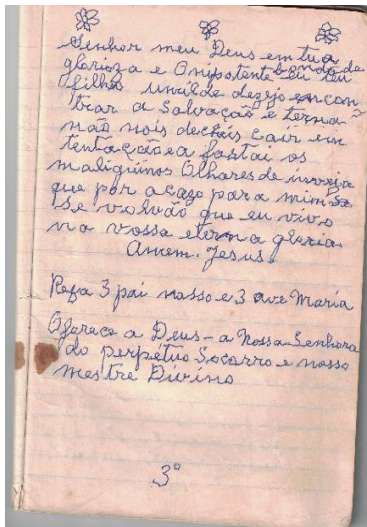 Senhor meu Deus em tua
glorioza e Onipotente bondade
Eu teu filho umilde dezejo encon
trar a Salvação eterna
não nois decheis cair em
tentacão ea fastai os
maliguinos Olhares de inveja
que por acazo para mim so
se volvão que eu vivo
na vossa eterna gloria
Amem. Jesus.
Resa 3 pai nosso e 3 ave Maria
Ofereco a Deus - a Nossa Senhora
do perpétuo Socorro e nosso
mestre Divino
3º